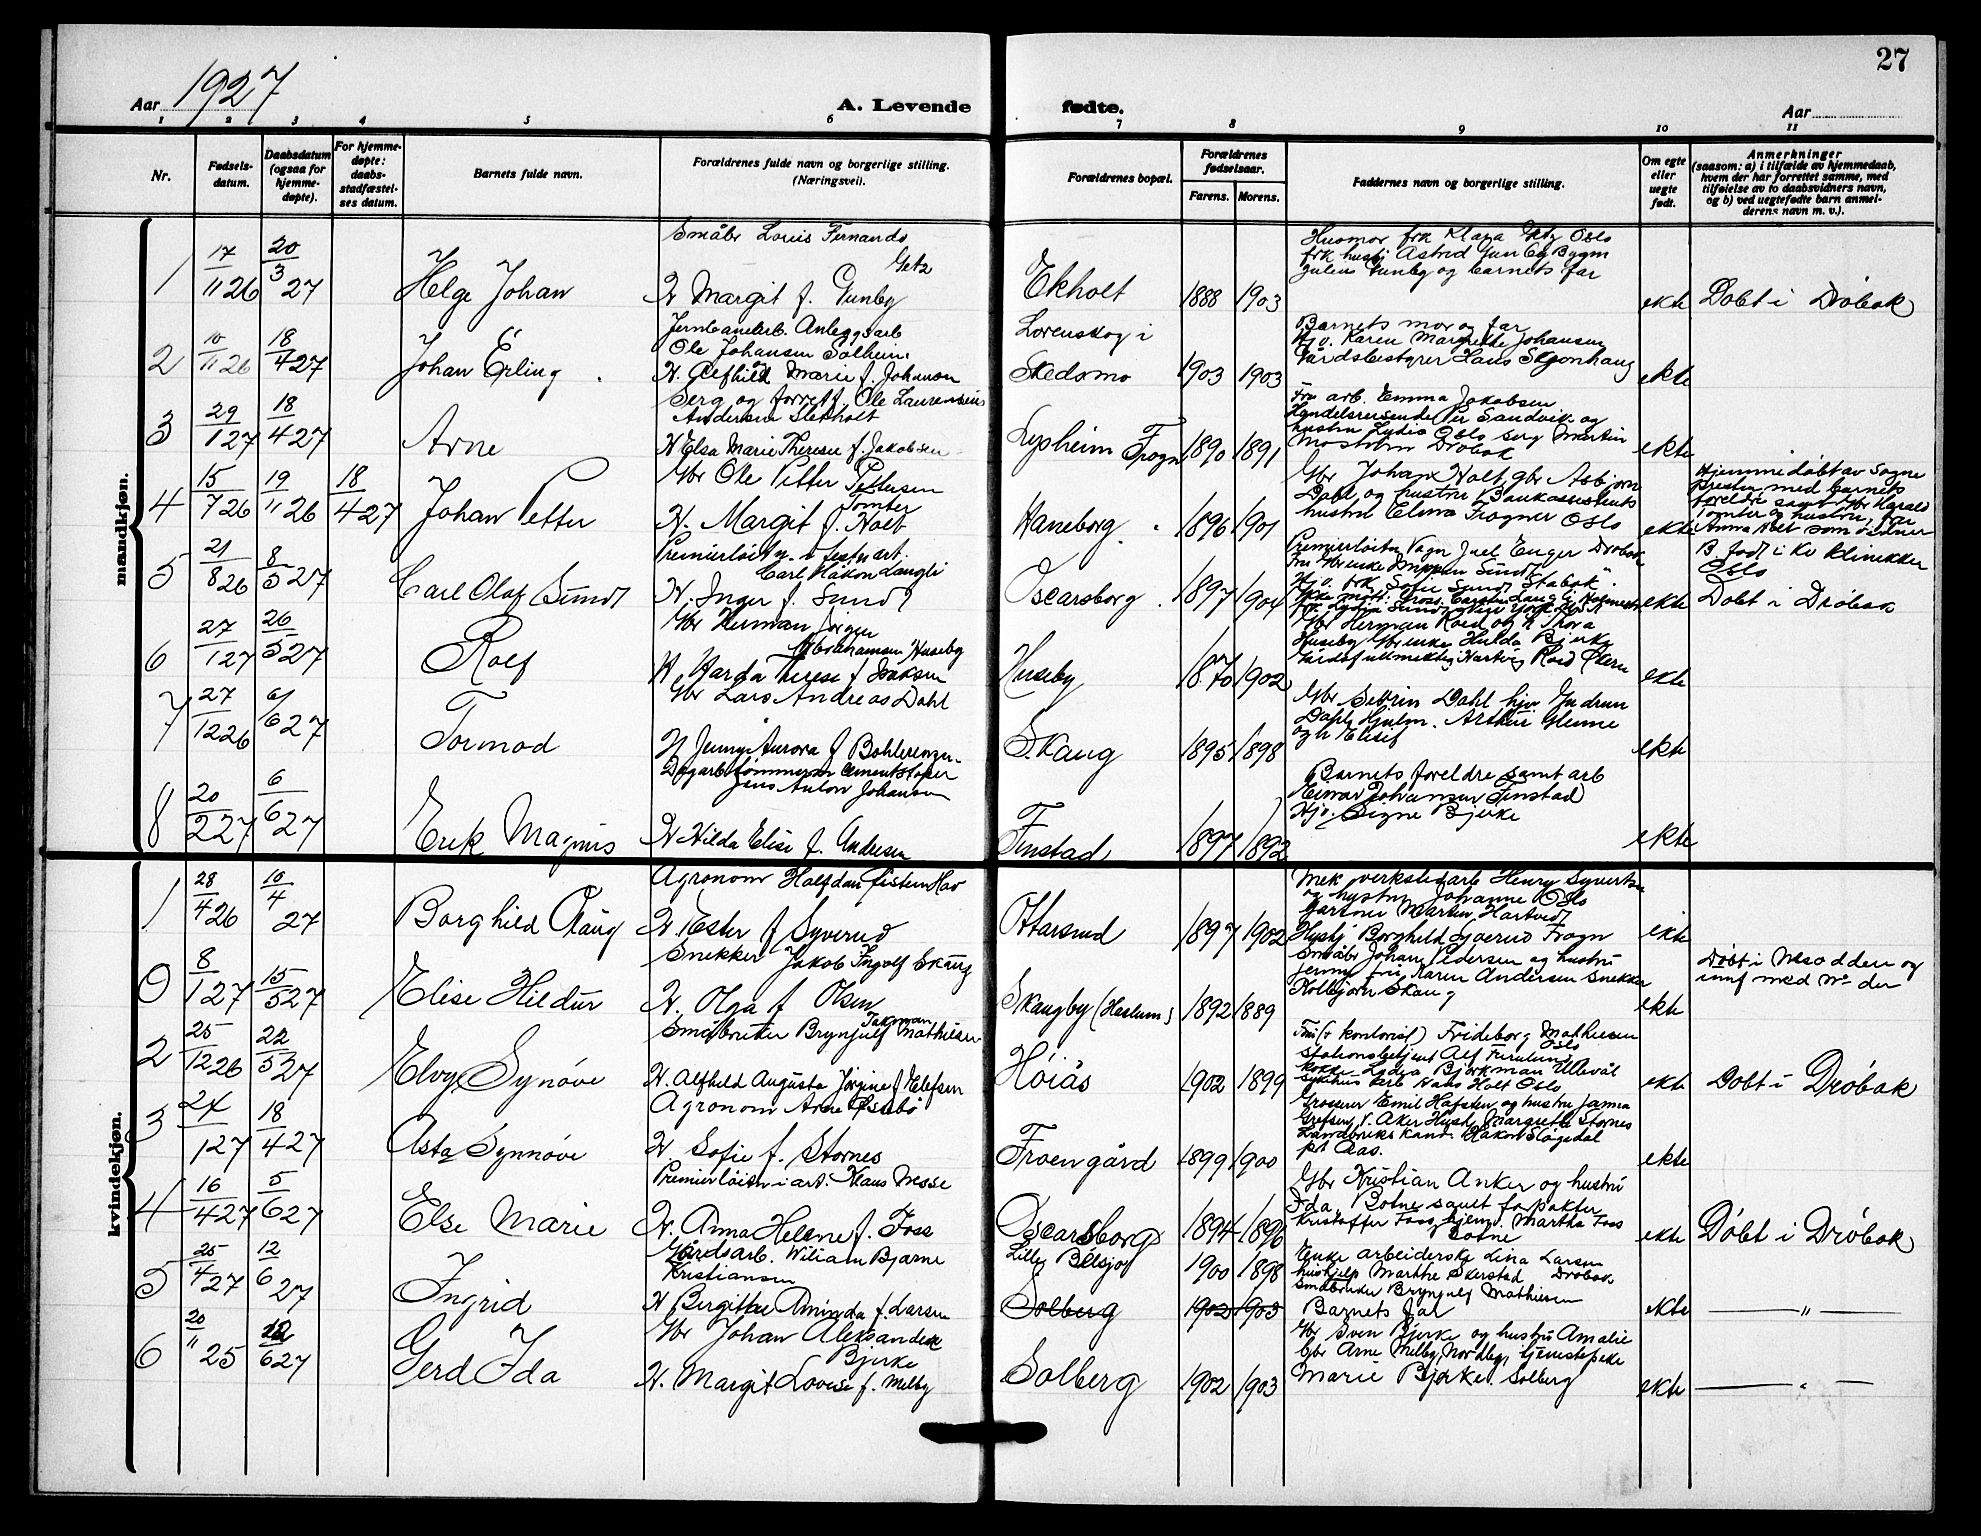 27
Aar 1927
A. Levende fødte.
Aar
1 2 3 4 5 6 7 8 9 10 11
Nr.
Fødsels-
datum.
Daabsdatum
(ogsaa for
hjemme-
døpte).
For hjemme-
døpte:
daabs-
stadfæstel-
ses datum.
Barnets fulde navn.
Forældrenes fulde navn og borgerlige stilling.
(Næringsvei).
Forældrenes bopæl.
Forældrenes
fødselsaar.
Farens. Morens.
Faddernes navn og borgerlige stilling.
Om egte
eller
uegte
født.
Anmerkninger
(saasom: a) i tilfælde av hjemmedaab,
hvem der har forrettet samme, med
tilføielse av to daabsvidners navn,
og b) ved uegtefødte barn anmel-
derens navn m. v.).
mandkjøn.
1 17/11 26 20/3 27 Helge Johan
Småbr Louis Fernando
Getz
H Margit f. Gunby
Ekholt 1888 1903
Husmor frk Klara Getz Oslo
frk husbj Astrid Gunby Bygm
Julius Gunby og barnets far
ekte Døbt i Drøbak
2 10/11 26 18/4 27 Johan Erling
Jernbanearb. Anleggsarb
Ole Johansen Solheim
H. Alfhild Marie f. Johansen
Lørenskog i
Skedsmo 1903 1903
Barnets mor og far
Hj.v. Karen Margrethe Johansen
Gårdsbestyrer Hans Skjønhaug
ekte
3 29/1 27 18/4 27 Arne
Serg og forretf. Ole Laurentius
Andersen Sletholt
H Elsa Marie Therese f. Jakobsen
Lysheim Frogn 1890 1891
Fru arb. Emma Jakobsen
Handelsreisende Per Sandvik og
hustru Lydia Oslo serg Martin
Moström Drøbak
ekte
4 15/7 26 19/11 26 18/4 27 Johan Petter
Gbr Ole Petter Pettersen
Tomter
H. Margit f. Holt
Haneborg 1896 1901
Gbr Johan Holt, gbr Asbjørn
Dahl og hustru Bankassistents
hustru Elma Frogner Oslo
ekte
Hjemmedøbt av Sogne
presten med barnets
foreldre samt gbr Harald
Tomter og hustru, fru
Anna Holt som vidner
5 21/8 26 8/5 27 Carl Olaf Sundt
Premierløitn. i festn.art.
Carl Håkon Langli
H. Inger f. Sundt
Oscarsborg 1897 1904
Premierløitn Vagn Juel Enger Drøbak
Hj.v. frk Sofie Sundt Stabæk
ekte
B. født i Kv klinikken
Oslo
Døbt i Drøbak
6 27/1 27 26/5 27 Rolf
Gbr Herman Jørgen
Abrahamsen Huseby
H. Harda Therese f Isaksen
Huseby 1870 1902
Gbr Herman Roed og h Thora
Huseby Gbr enke Hulda Bjerke
Gårdsfullmektig Hartvig Roed Økern
ekte
7 27/12 26 6/6 27 Tormod
Gbr Lars Andreas Dahl
H Jenny Aurora f Bohlerengen
Skaug 1895 1898
Gbr Severin Dahl hjv Gudrun
Dahl, Hjulm. Arthur Glenne
og h Elisif
ekte
8 20/2 27 6/6 27 Erik Magnus
Dagarb tømmerm cementstøper
Jens Anton Johansen
H Hilda Elise f. Andresen
Finstad 1897 1892
Barnets foreldre samt arb
Einar Johansen Finstad
Hj.v. Signe Bjerke
ekte
kvindekjøn.
1 28/4 26 10/4 27 Borghild Olaug
Agronom Halfdan Eistein Hav
H. Ester f Syverud
Ottarsrud 1897 1902
Mek verkstedarb Henry Syvertsen
og hustru Johanne Oslo
Gartner Martin Hartvedt
Hushj Borghild Syverud Frogn
ekte
0 8/1 27 15/5 27 Elise Hildur
Snekker Jakob Ingolf Skaug
H. Olga f Olsen
Skaugby (Haslum) 1892 1889
Småbr Johan Pedersen og hustru
Jenny fru Karen Andersen Snekker
Kolbjørn Skaug
ekte
Døbt i Nesodden og
innf med No der
2 25/12 26 22/5 27 Elvy Synøve
Småbruker Brynjulf Takman Mathisen
H. Alfhild Augusta Jørgine f Elefsen
Høiås 1902 1899
Fru (+ kontorist) Frideborg Mathiesen
Oslo
Stationsbetjent Alf Furulund
kokke Lydia Bjørkman Ullevål
sykehus arb Hans Holt Oslo
ekte Døbt i Drøbak
3 24/1 27 18/4 27 Asta Synnøve
Agronom Arne Øsebø
H. Sofie f. Stornes
Froen gård 1899 1900
Grosserer Emil Hafsten og hustru Janna
Grefsen V. Aker Hush. Margrethe Stornes
Landbrukskand. Håkon Sløgedal
pt Aas.
ekte
4 16/4 27 5/6 27 Else Marie
Premierløitn i art. Klaus Mosse
H. Anna Helene f. Foss
Oscarsborg 1894 1896
Gbr Kristian Anker og hustru
Ida, Botne samt forpakter
Kristoffer Foss, hjem. Martha Foss
Botne
ekte Døbt i Drøbak
5 25/4 27 12/6 27 Ingrid
Gårdsarb. Wiliam Bjarne
Kristiansen
H Birgitte Aminda f. Larsen
Lille Bilsjø 1900 1898
Solberg 1902 1903
Enke arbeiderske Lina Larsen
hushjelp Marthe Skerstad Drøbak
Småbruker Brynjulf Mathiesen
Barnets far
ekte — " —
6 20/11 25 12/6 27 Gerd Ida
Gbr Johan Aleksander
Bjerke
H. Margit Lovise f. Melby
Solberg 1902 1903
Gbr Sven Bjerke og hustru Amalie
Gbr Arne Melby, Nordby, tjenestepike
Marie Bjerke. Solberg
ekte — " —